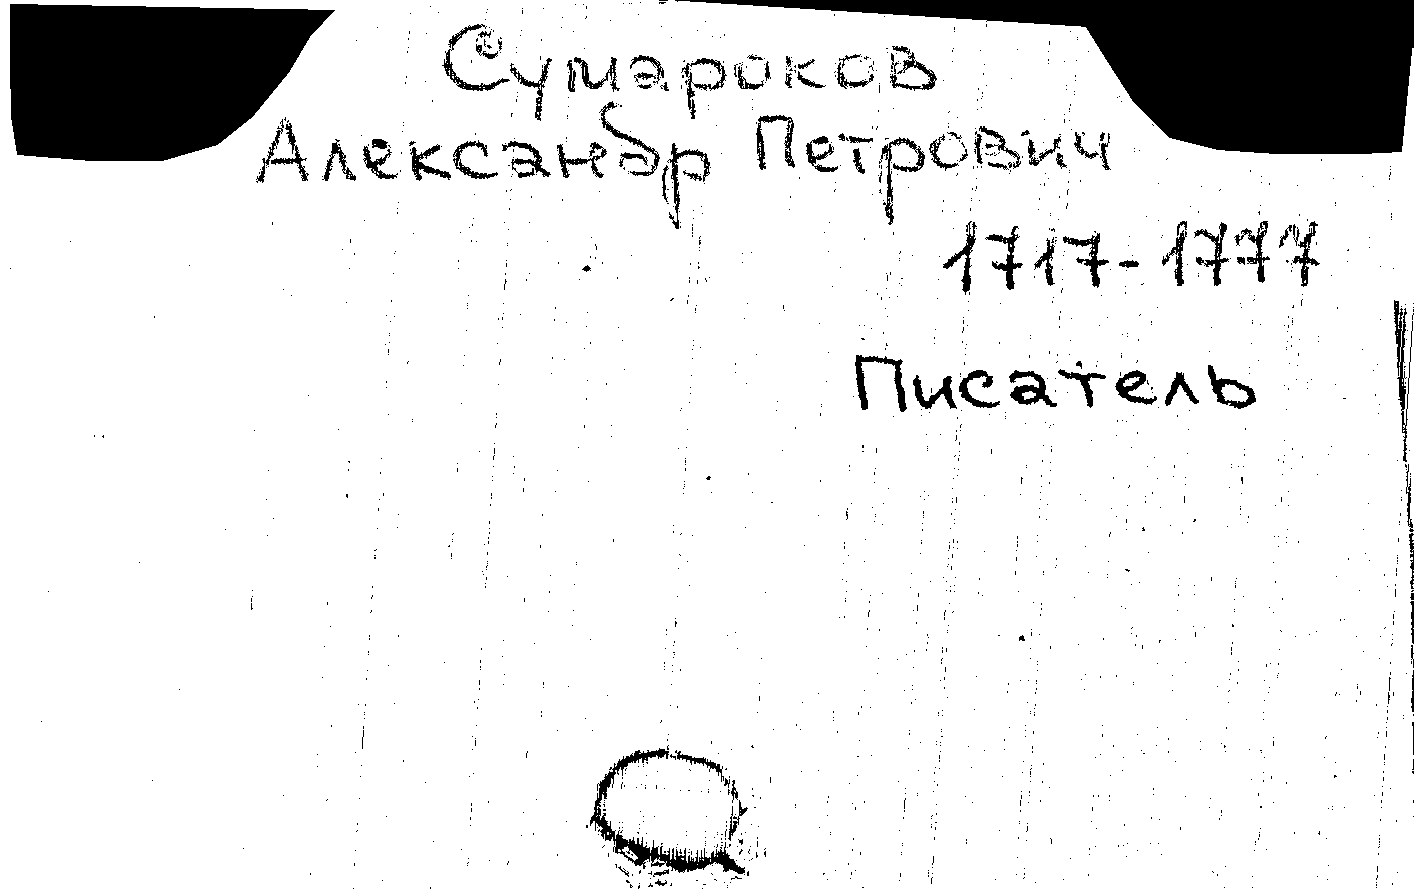 Сумароков
Александр Петрович
1717-1777
Писатель